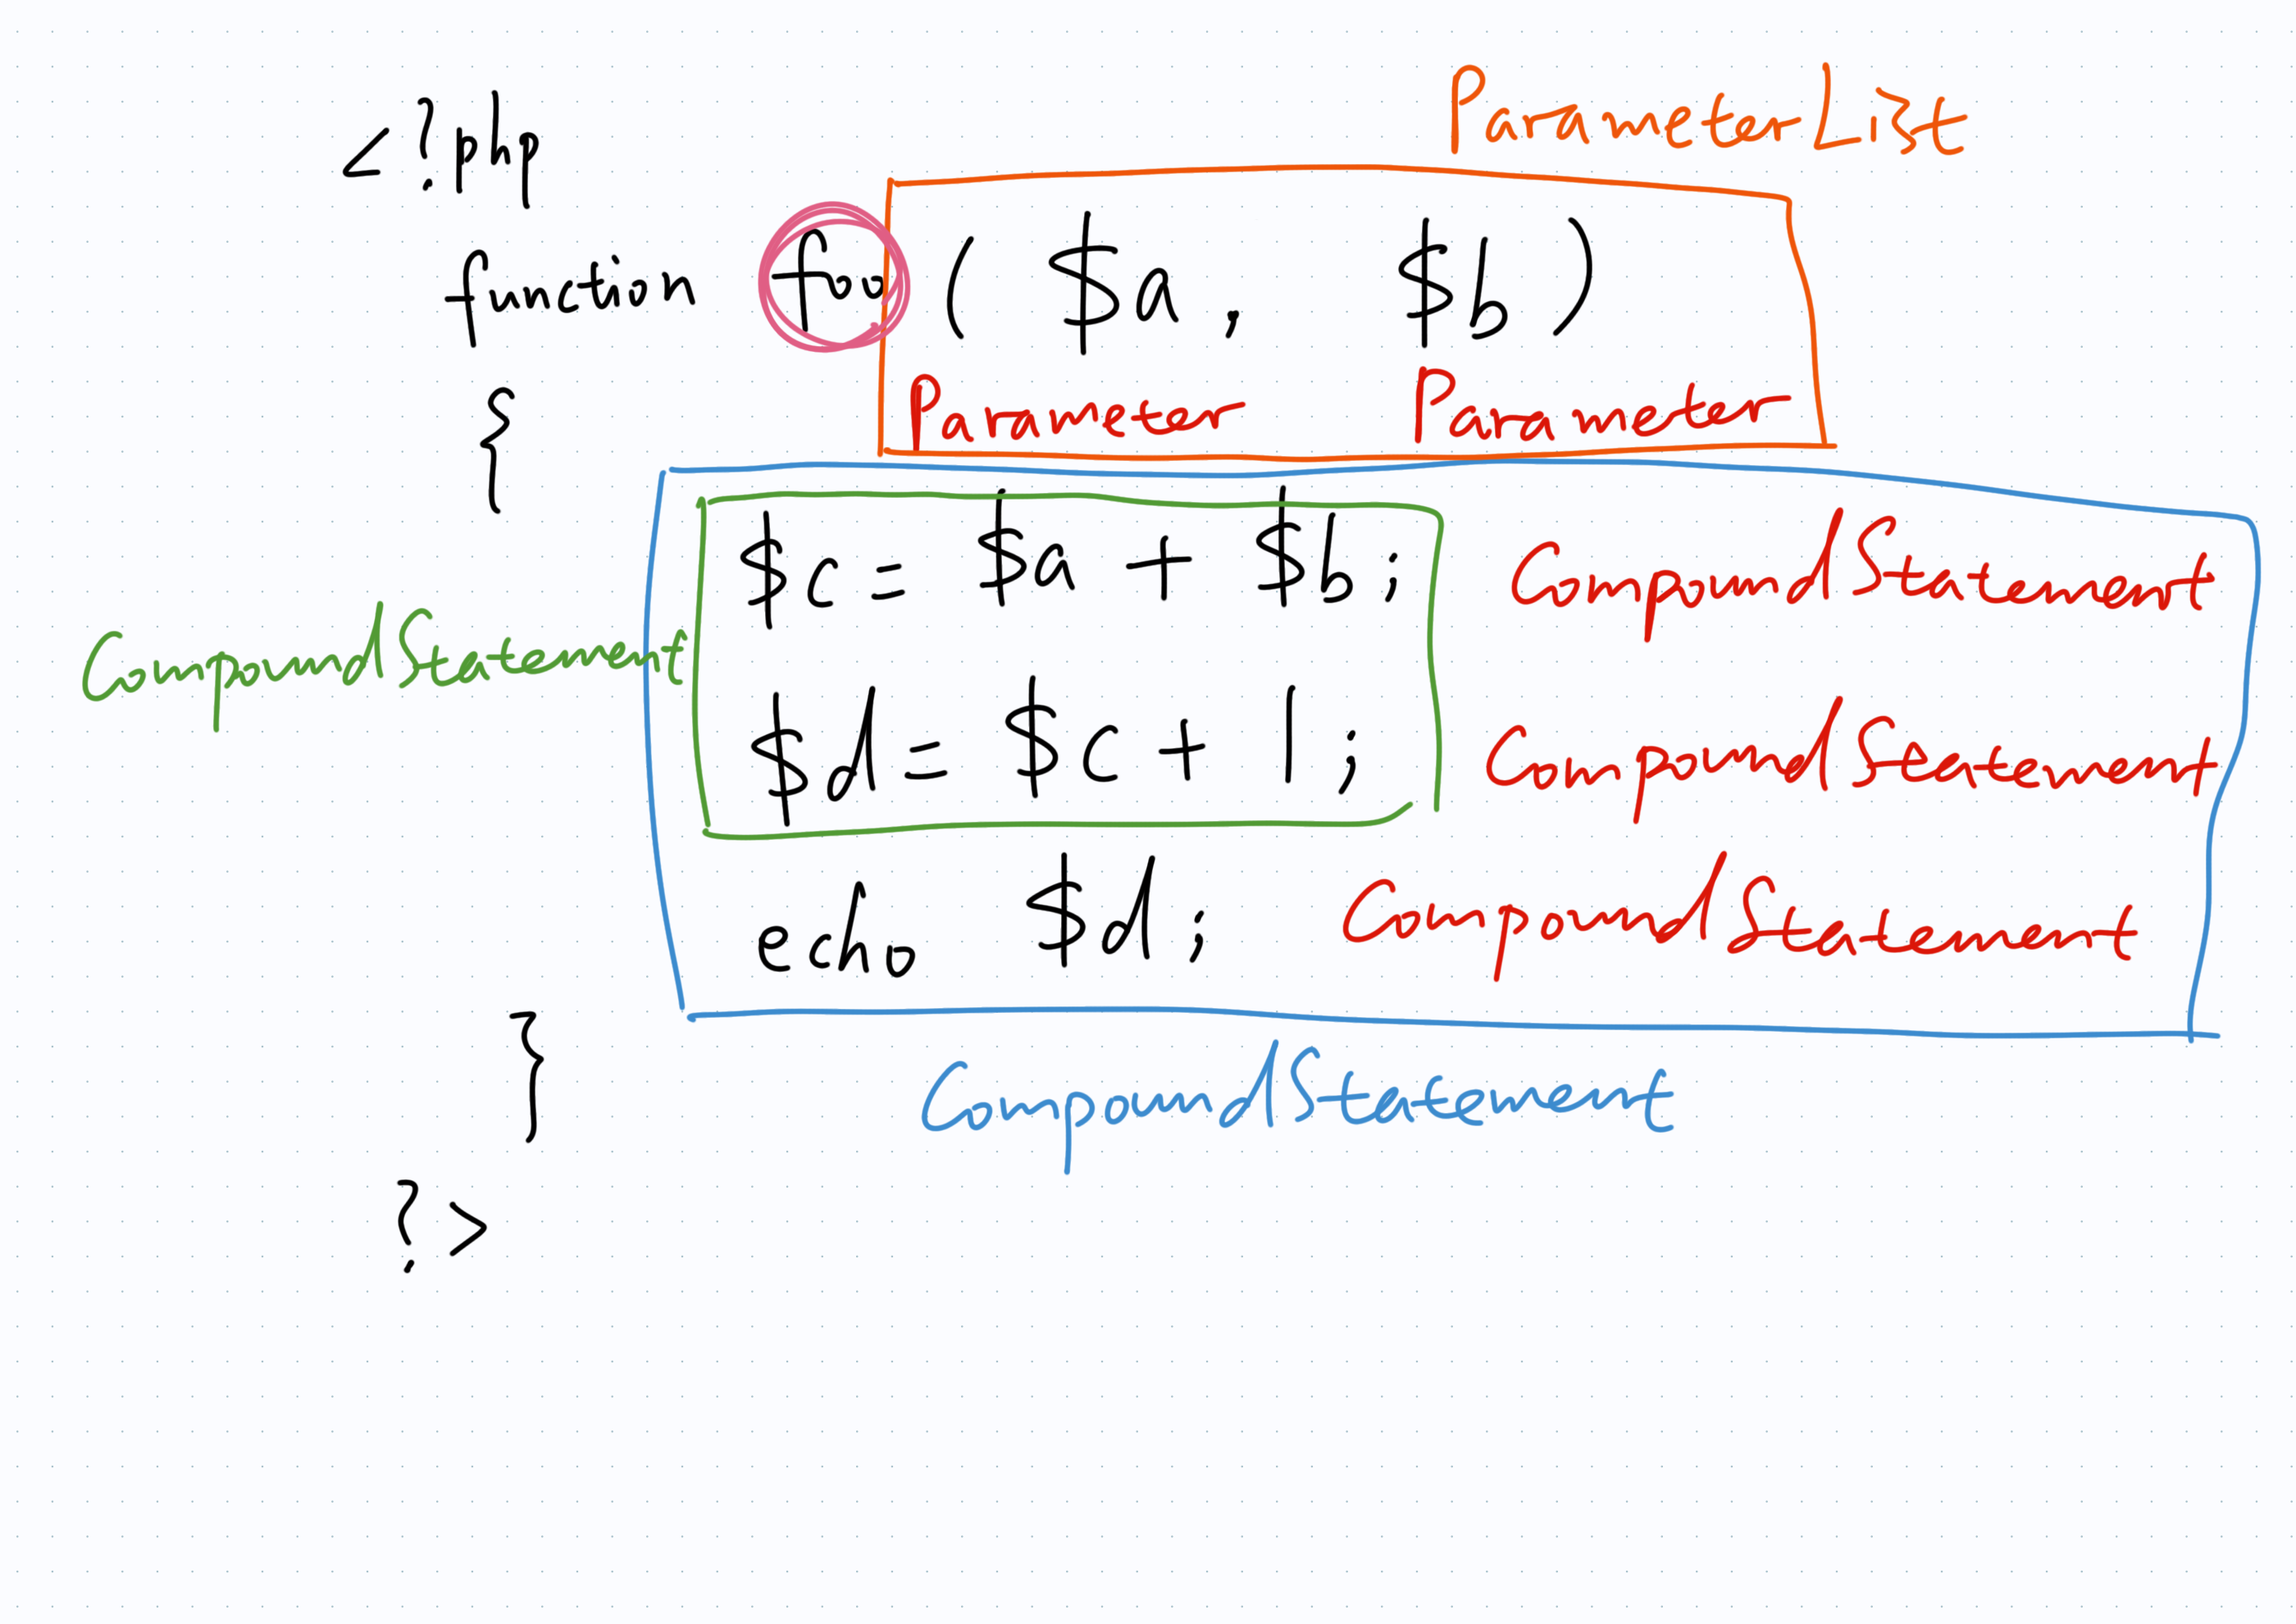 ParameterList
<?php
function foo ( $a , $b )
Parameter Parameter
{
$c = $a + $b ; CompoundStatement
CompoundStatement
$d = $c + 1 ; CompoundStatement
echo $d ; CompoundStatement
}
CompoundStatement
?>